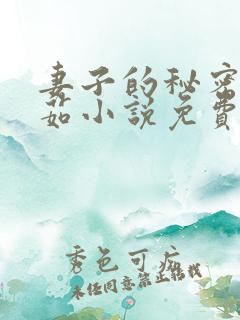 妻子的秘密
茹小说免费
秀色可疗
未经同意禁止转载